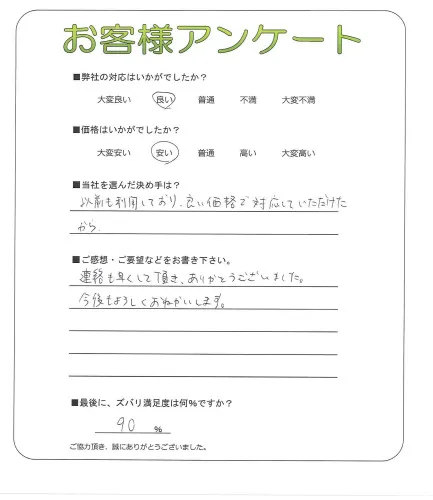 お客様アンケート
■弊社の対応はいかがでしたか？
大変良い 良い 普通 不満 大変不満
■価格はいかがでしたか？
大変安い 安い 普通 高い 大変高い
■当社を選んだ決め手は？
以前も利用しており、良い価格で対応していただけた
から。
■ご感想・ご要望などをお書き下さい。
連絡も早くして頂き、ありがとうございました。
今後もよろしくおねがいします。
■最後に、ズバリ満足度は何%ですか？
90 %
ご協力頂き、誠にありがとうございました。